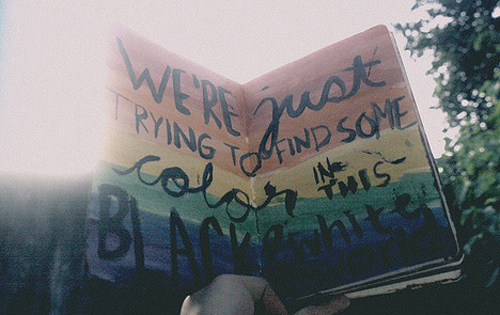 WE'RE just
TRYING TO FIND SOME
color IN THIS
BLACK & white
world